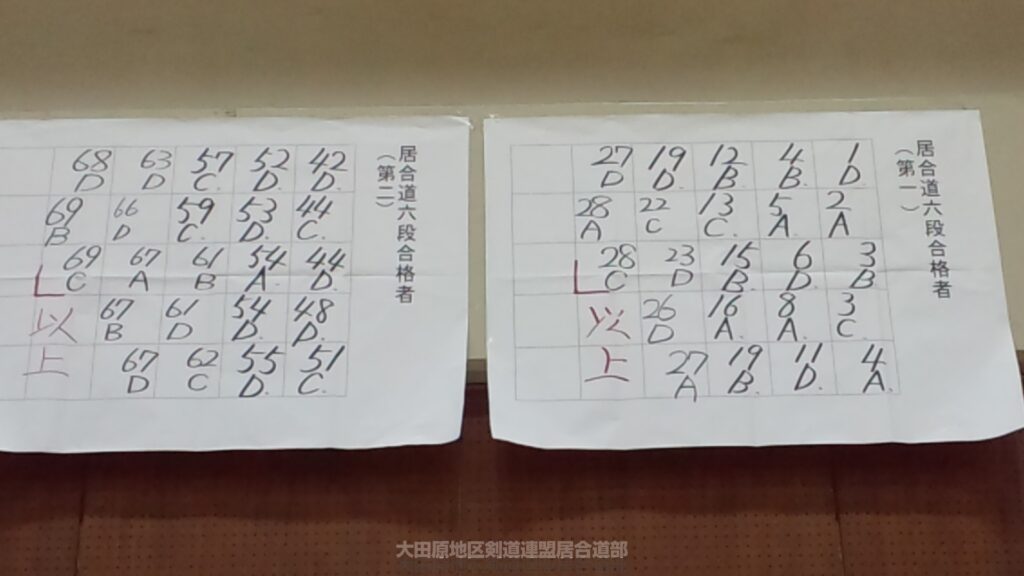 居合道六段合格者
（第一）
1 D. 2 A 3 B 3 C. 4 A.
4 B. 5 A. 6 D. 8 A. 11 D.
12 B. 13 C. 15 B. 16 A. 19 B.
19 D. 22 C 23 D 26 D 27 A
27 D 28 A 28 C 以上
居合道六段合格者
（第二）
42 D. 44 C. 44 D. 48 D. 51 C.
52 D. 53 D. 54 A. 54 D. 55 D.
57 C. 59 C. 61 B 61 D 62 C
63 D 66 D 67 A 67 B 67 D
68 D 69 B 69 C 以上
大田原地区剣道連盟居合道部